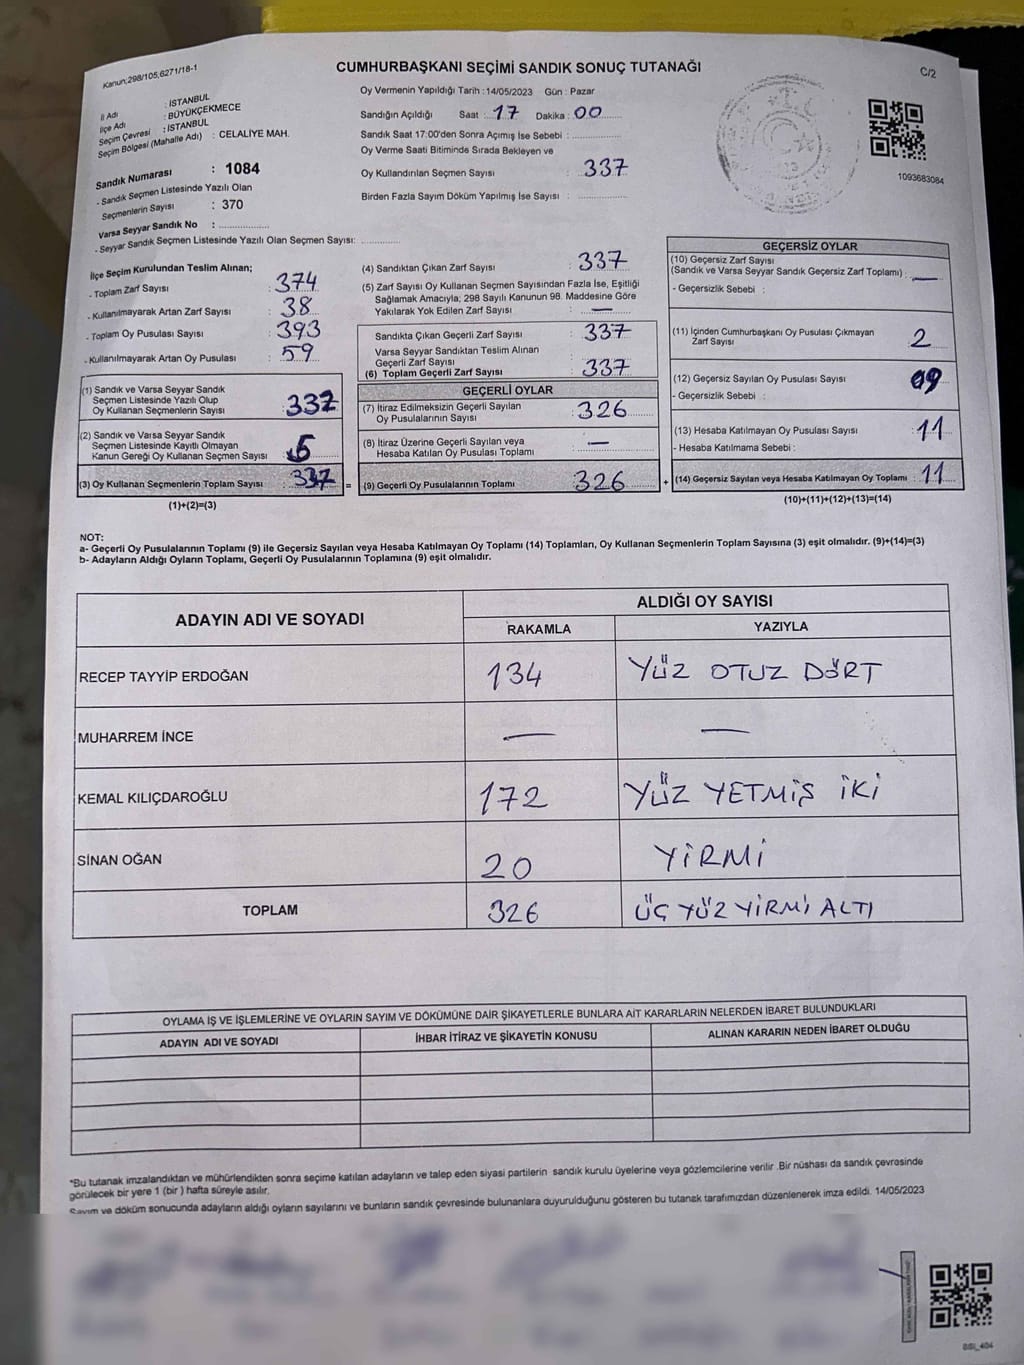 Kanun;298/105,6271/18-1
CUMHURBAŞKANI SEÇİMİ SANDIK SONUÇ TUTANAĞI
C/2
İl Adı : İSTANBUL
İlçe Adı : BÜYÜKÇEKMECE
Seçim Çevresi : İSTANBUL
Seçim Bölgesi (Mahalle Adı) : CELALİYE MAH.
Sandık Numarası : 1084
- Sandık Seçmen Listesinde Yazılı Olan
Seçmenlerin Sayısı : 370
Varsa Seyyar Sandık No : ................
- Seyyar Sandık Seçmen Listesinde Yazılı Olan Seçmen Sayısı: ............
Oy Vermenin Yapıldığı Tarih :14/05/2023 Gün : Pazar
Sandığın Açıldığı Saat : 17 Dakika : 00
Sandık Saat 17:00'den Sonra Açımış İse Sebebi : ................
Oy Verme Saati Bitiminde Sırada Bekleyen ve
Oy Kullandırılan Seçmen Sayısı : 337
Birden Fazla Sayım Döküm Yapılmış İse Sayısı : ................
1093683084
İlçe Seçim Kurulundan Teslim Alınan;
- Toplam Zarf Sayısı : 374
- Kullanılmayarak Artan Zarf Sayısı : 38
- Toplam Oy Pusulası Sayısı : 393
- Kullanılmayarak Artan Oy Pusulası : 59
(1) Sandık ve Varsa Seyyar Sandık
Seçmen Listesinde Yazılı Olup
Oy Kullanan Seçmenlerin Sayısı : 332
(2) Sandık ve Varsa Seyyar Sandık
Seçmen Listesinde Kayıtlı Olmayan
Kanun Gereği Oy Kullanan Seçmen Sayısı : 5
(3) Oy Kullanan Seçmenlerin Toplam Sayısı : 337 =
(1)+(2)=(3)
(4) Sandıktan Çıkan Zarf Sayısı : 337
(5) Zarf Sayısı Oy Kullanan Seçmen Sayısından Fazla İse, Eşitliği
Sağlamak Amacıyla; 298 Sayılı Kanunun 98. Maddesine Göre
Yakılarak Yok Edilen Zarf Sayısı : —
Sandıkta Çıkan Geçerli Zarf Sayısı : 337
Varsa Seyyar Sandıktan Teslim Alınan
Geçerli Zarf Sayısı :
(6) Toplam Geçerli Zarf Sayısı : 337
GEÇERLİ OYLAR
(7) İtiraz Edilmeksizin Geçerli Sayılan
Oy Pusulalarının Sayısı : 326
(8) İtiraz Üzerine Geçerli Sayılan veya
Hesaba Katılan Oy Pusulası Toplamı : —
(9) Geçerli Oy Pusulalarının Toplamı : 326 +
GEÇERSİZ OYLAR
(10) Geçersiz Zarf Sayısı
(Sandık ve Varsa Seyyar Sandık Geçersiz Zarf Toplamı) : —
- Geçersizlik Sebebi :
(11) İçinden Cumhurbaşkanı Oy Pusulası Çıkmayan
Zarf Sayısı : 2
(12) Geçersiz Sayılan Oy Pusulası Sayısı : 09
- Geçersizlik Sebebi :
(13) Hesaba Katılmayan Oy Pusulası Sayısı : 11
- Hesaba Katılmama Sebebi :
(14) Geçersiz Sayılan veya Hesaba Katılmayan Oy Toplamı : 11
(10)+(11)+(12)+(13)=(14)
NOT:
a- Geçerli Oy Pusulalarının Toplamı (9) ile Geçersiz Sayılan veya Hesaba Katılmayan Oy Toplamı (14) Toplamları, Oy Kullanan Seçmenlerin Toplam Sayısına (3) eşit olmalıdır. (9)+(14)=(3)
b- Adayların Aldığı Oyların Toplamı, Geçerli Oy Pusulalarının Toplamına (9) eşit olmalıdır.
ADAYIN ADI VE SOYADI
ALDIĞI OY SAYISI
RAKAMLA YAZIYLA
RECEP TAYYİP ERDOĞAN 134 YÜZ OTUZ DÖRT
MUHARREM İNCE — —
KEMAL KILIÇDAROĞLU 172 YÜZ YETMİŞ İKİ
SİNAN OĞAN 20 YİRMİ
TOPLAM 326 ÜÇ YÜZ YİRMİ ALTI
OYLAMA İŞ VE İŞLEMLERİNE VE OYLARIN SAYIM VE DÖKÜMÜNE DAİR ŞİKAYETLERLE BUNLARA AİT KARARLARIN NELERDEN İBARET BULUNDUKLARI
ADAYIN ADI VE SOYADI İHBAR İTİRAZ VE ŞİKAYETİN KONUSU ALINAN KARARIN NEDEN İBARET OLDUĞU
*Bu tutanak imzalandıktan ve mühürlendikten sonra seçime katılan adayların ve talep eden siyasi partilerin sandık kurulu üyelerine veya gözlemcilerine verilir .Bir nüshası da sandık çevresinde
görülecek bir yere 1 (bir ) hafta süreyle asılır.
Sayım ve döküm sonucunda adayların aldığı oyların sayılarını ve bunların sandık çevresinde bulunanlara duyurulduğunu gösteren bu tutanak tarafımızdan düzenlenerek imza edildi. 14/05/2023